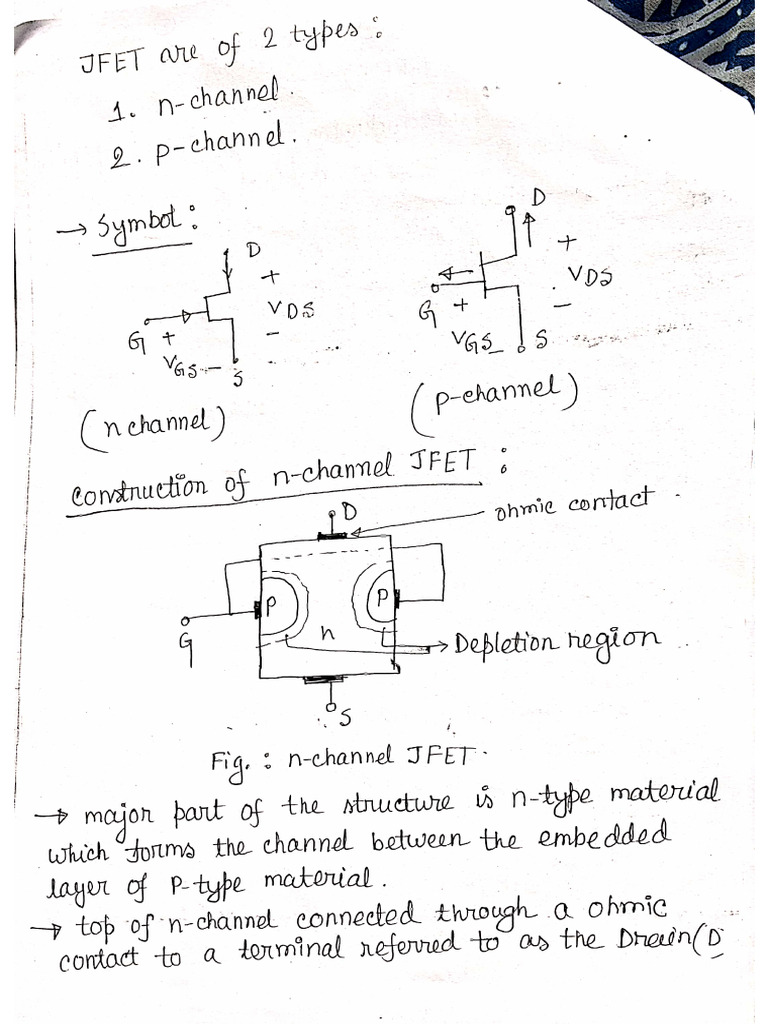 JFET are of 2 types:
1. n-channel.
2. p-channel.
→ Symbol:
D
+
VDS
-
G
+
VGS -
S
(n channel)
D
+
VDS
-
G
+
VGS
S
(p-channel)
construction of n-channel JFET :
D
ohmic contact
P
P
n
G
→ Depletion region
S
Fig. : n-channel JFET.
→ major part of the structure is n-type material
which forms the channel between the embedded
layer of P-type material.
→ top of n-channel connected through a ohmic
contact to a terminal referred to as the Drain(D